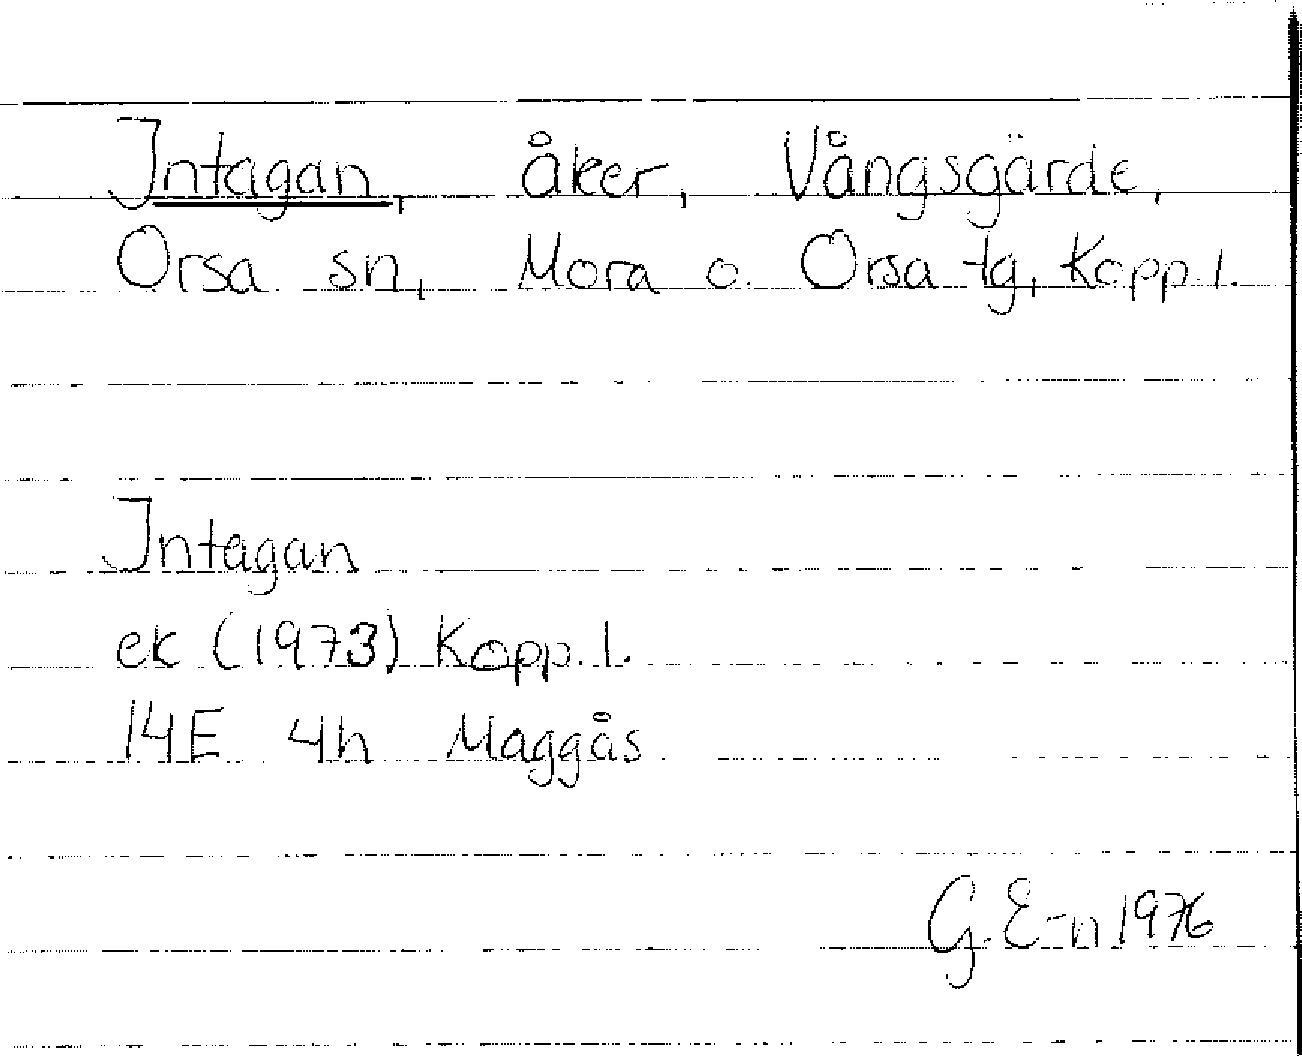 Intagan, åker, Vångsgärde,
Orsa sn, Mora o. Orsa tg, Kopp. l.
Intagan
ek (1973) Kopp. l.
14E 4h Maggås
G. E-n 1976